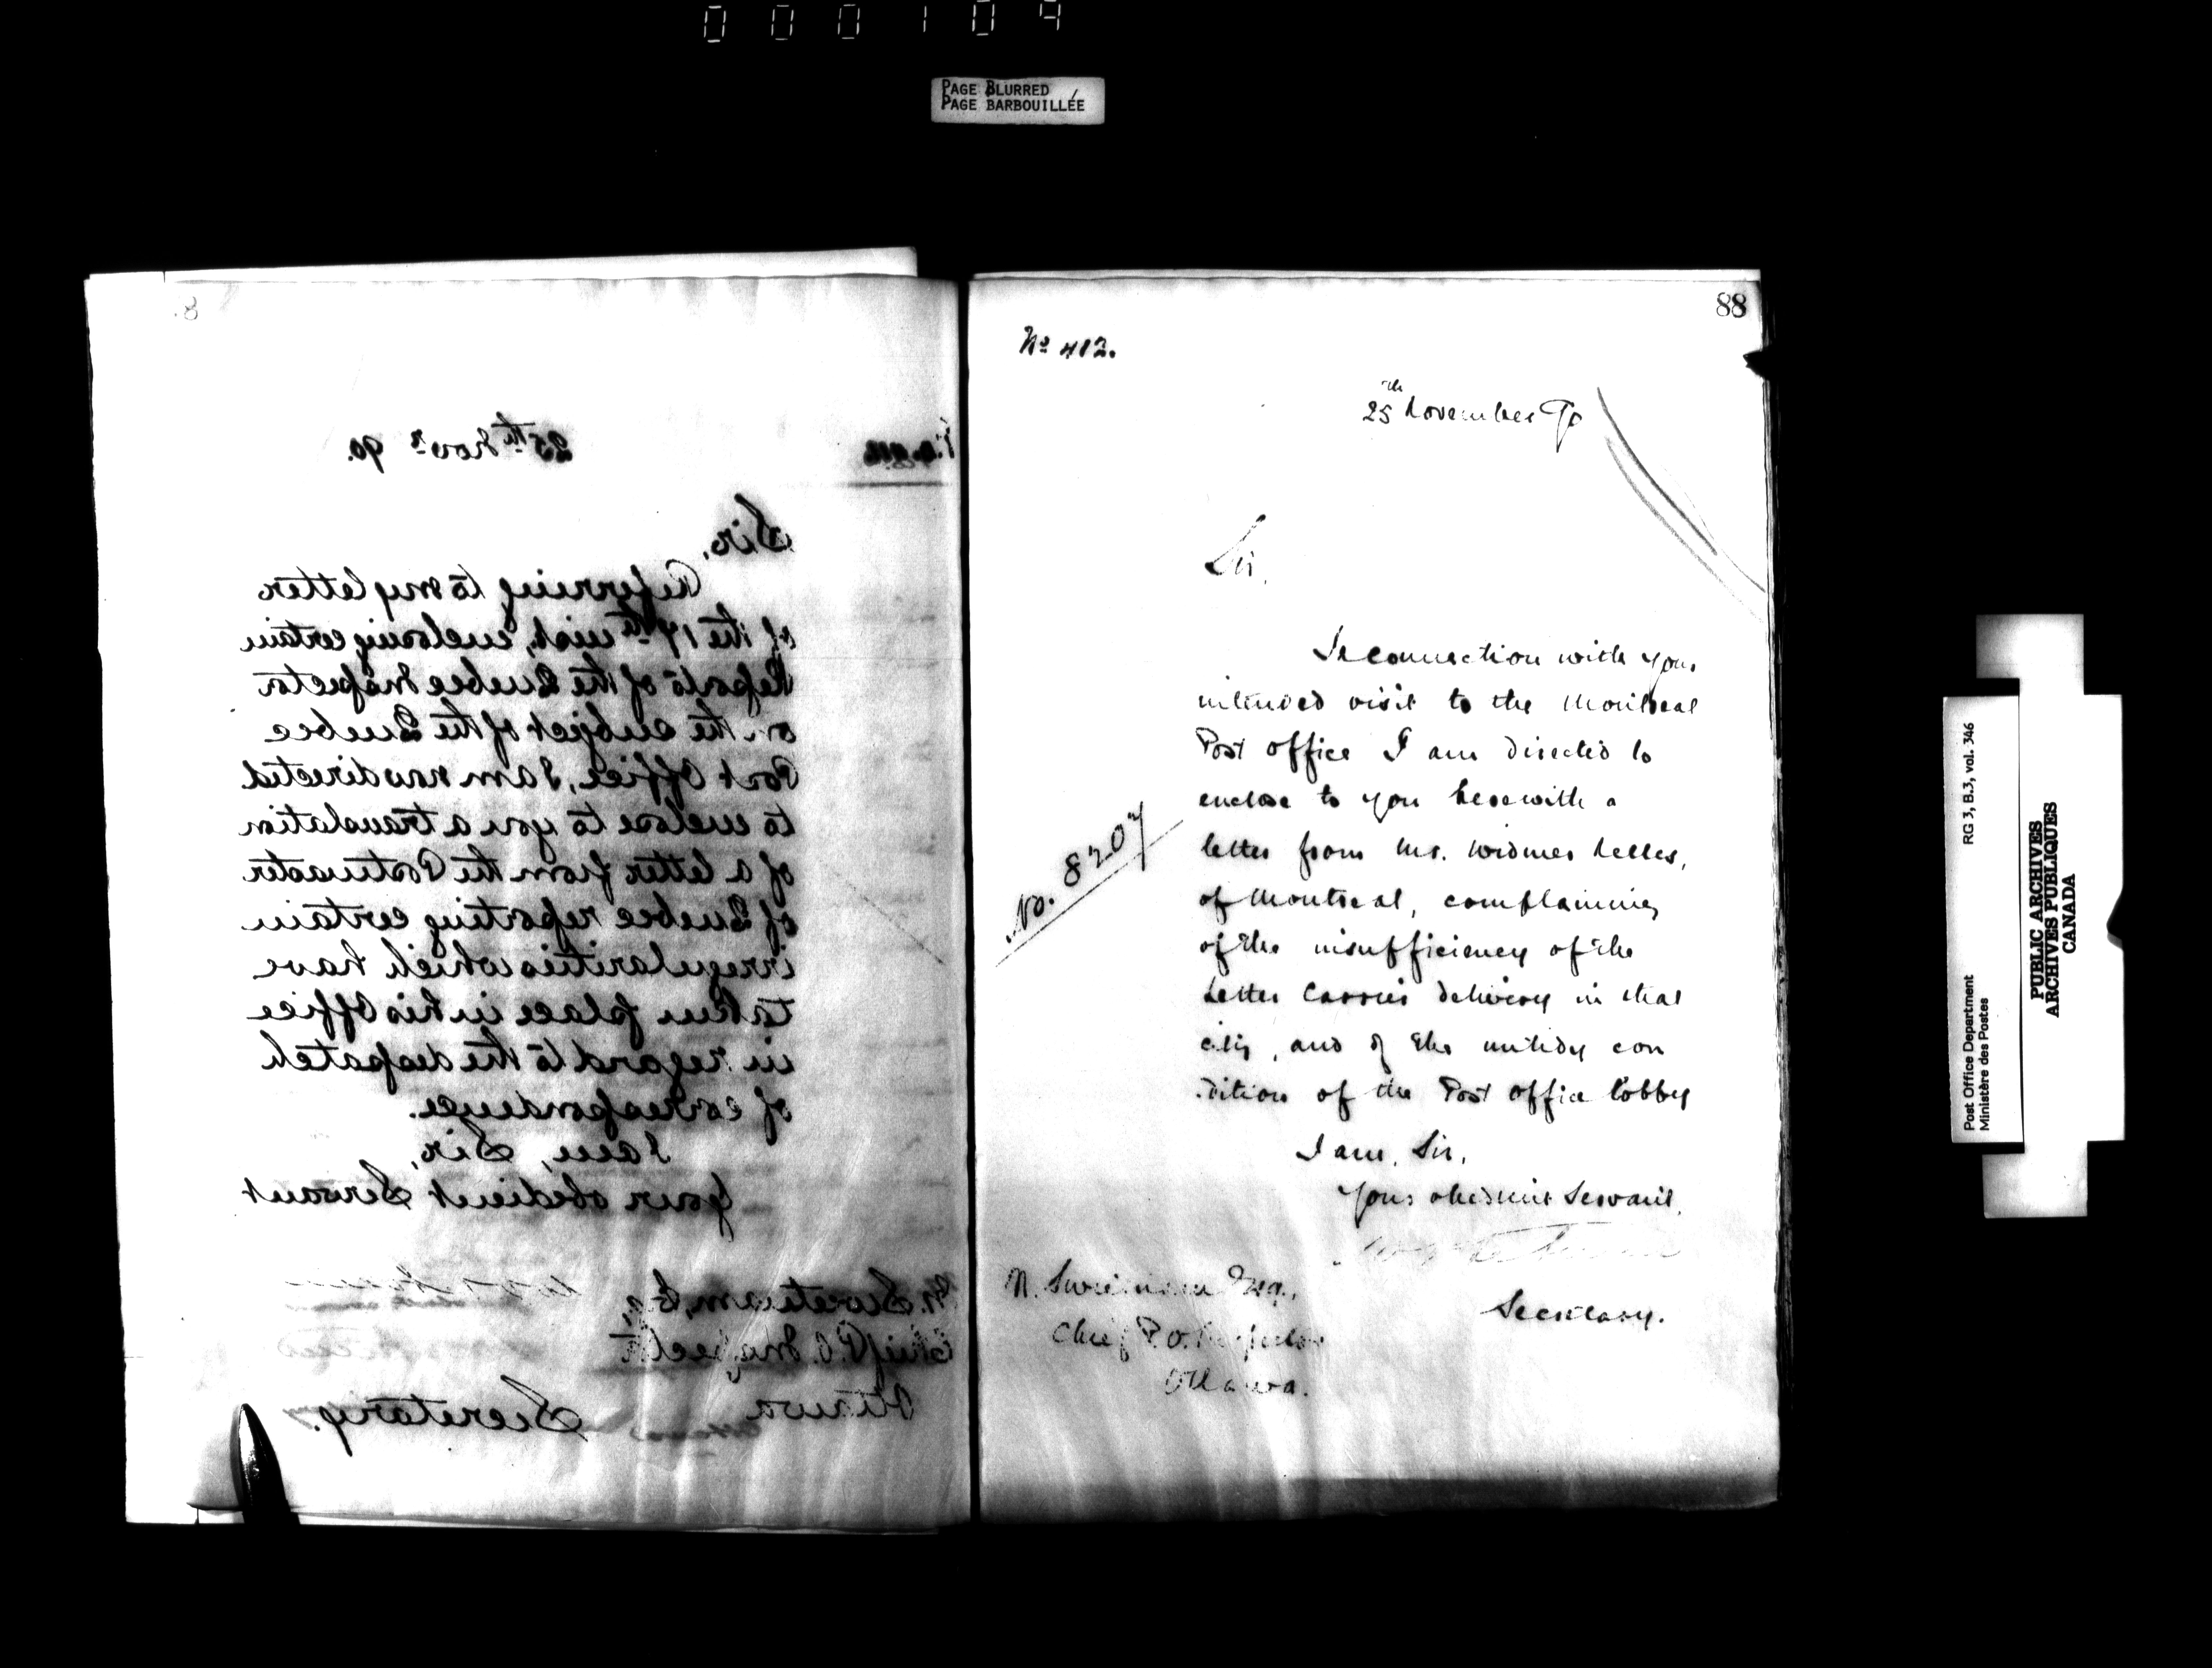 000109
PAGE BLURRED
PAGE BARBOUILLÉE
25th Novr 90.
Sir,
Referring to my letter
of the 17th inst, enclosing certain
Reports of the Quebec Inspector
on the subject of the Quebec
Post Office, I am now directed
to enclose to you a translation
of a letter from the Postmaster
of Quebec reporting certain
irregularities which have
taken place in his Office
in regard to the despatch
of correspondence.
I am, Sir,
Your obedient Servant
Sweetnam, Esq,
Chief P.O. Inspector
Ottawa
Secretary.
88
No 412.
25th November 90
Sir,
In connection with your
intended visit to the Montreal
Post office I am directed to
enclose to you herewith a
letter from Mr.
of Montreal, complaining
of the insufficiency of the
Letter Carrier delivery in that
city, and of the untidy con
dition of the Post office lobby
I am, Sir,
Your obedient Servant,
Secretary.
No. 8207
M. Sweetnam Esq.,
Chief P.O. Inspector
Ottawa.
Post Office Department
Ministère des Postes
RG 3, B.3, vol. 346
PUBLIC ARCHIVES
ARCHIVES PUBLIQUES
CANADA